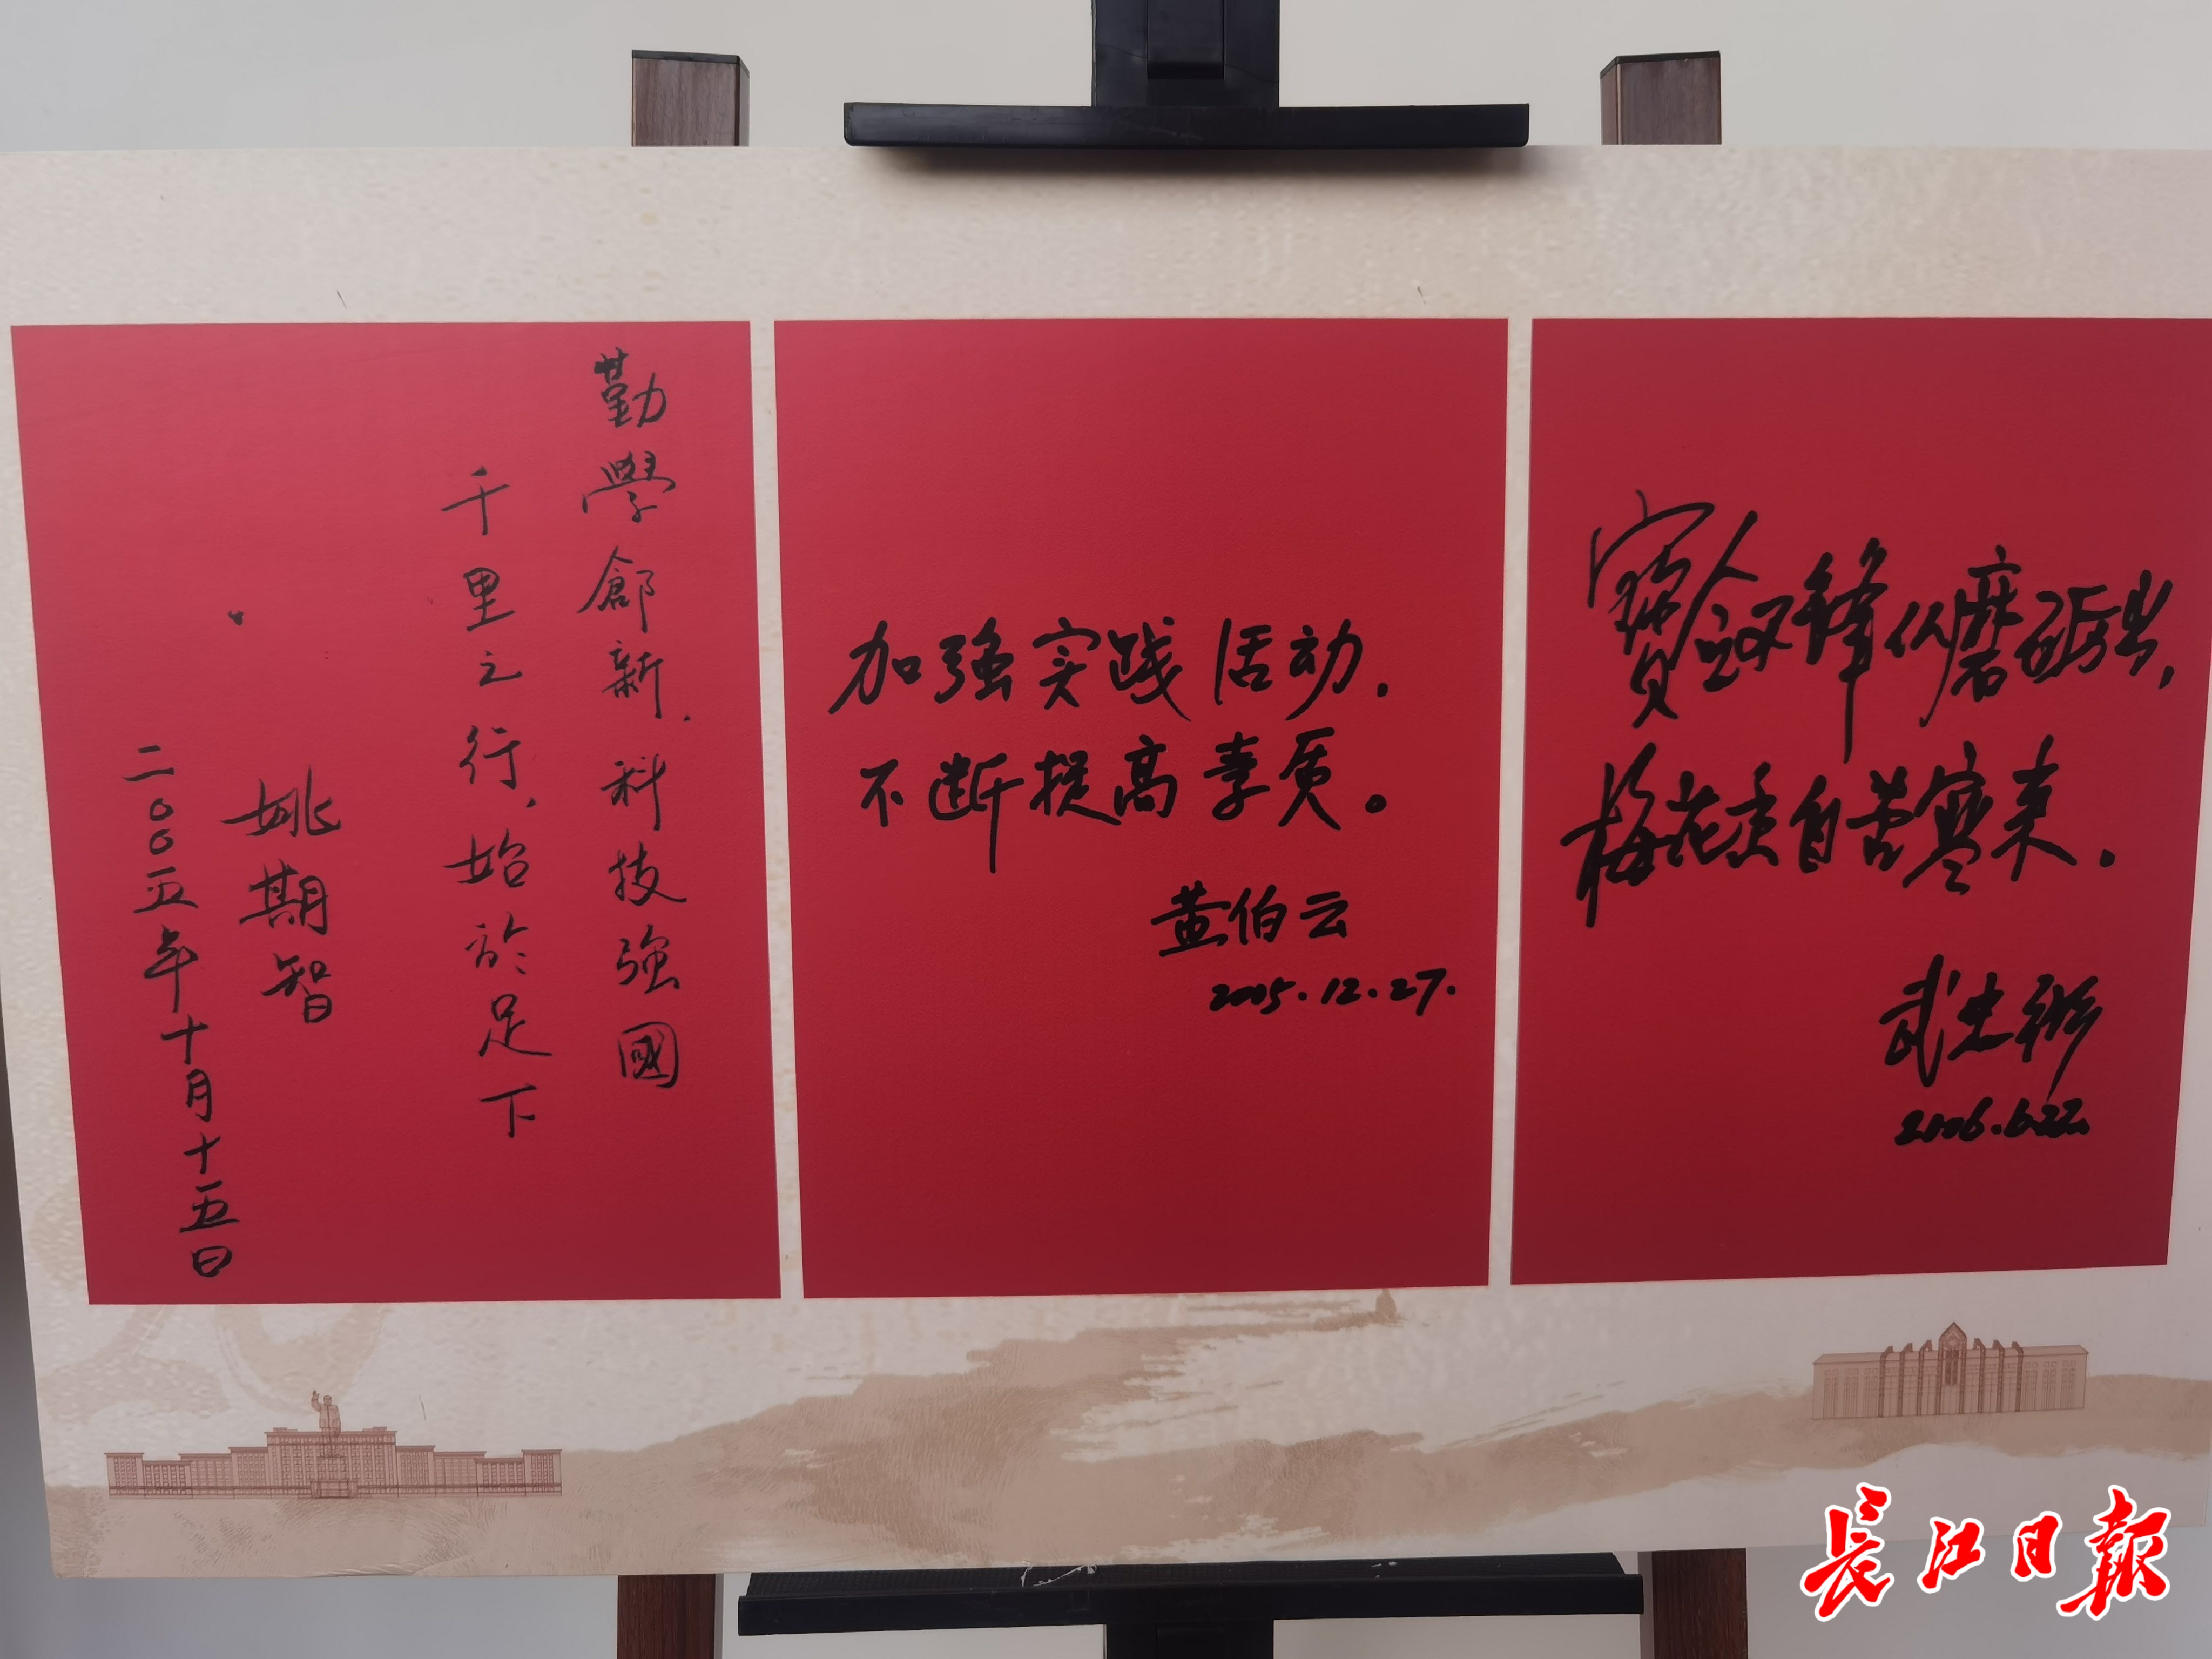 勤學創新，科技強國
千里之行，始於足下
姚期智
二〇〇五年十月十五日
加強实践活动，
不断提高素质。
黄伯云
2005.12.27.
寶劍鋒从磨砺出，
梅花香自苦寒来．
武忠弼
2006.6.22
長江日報